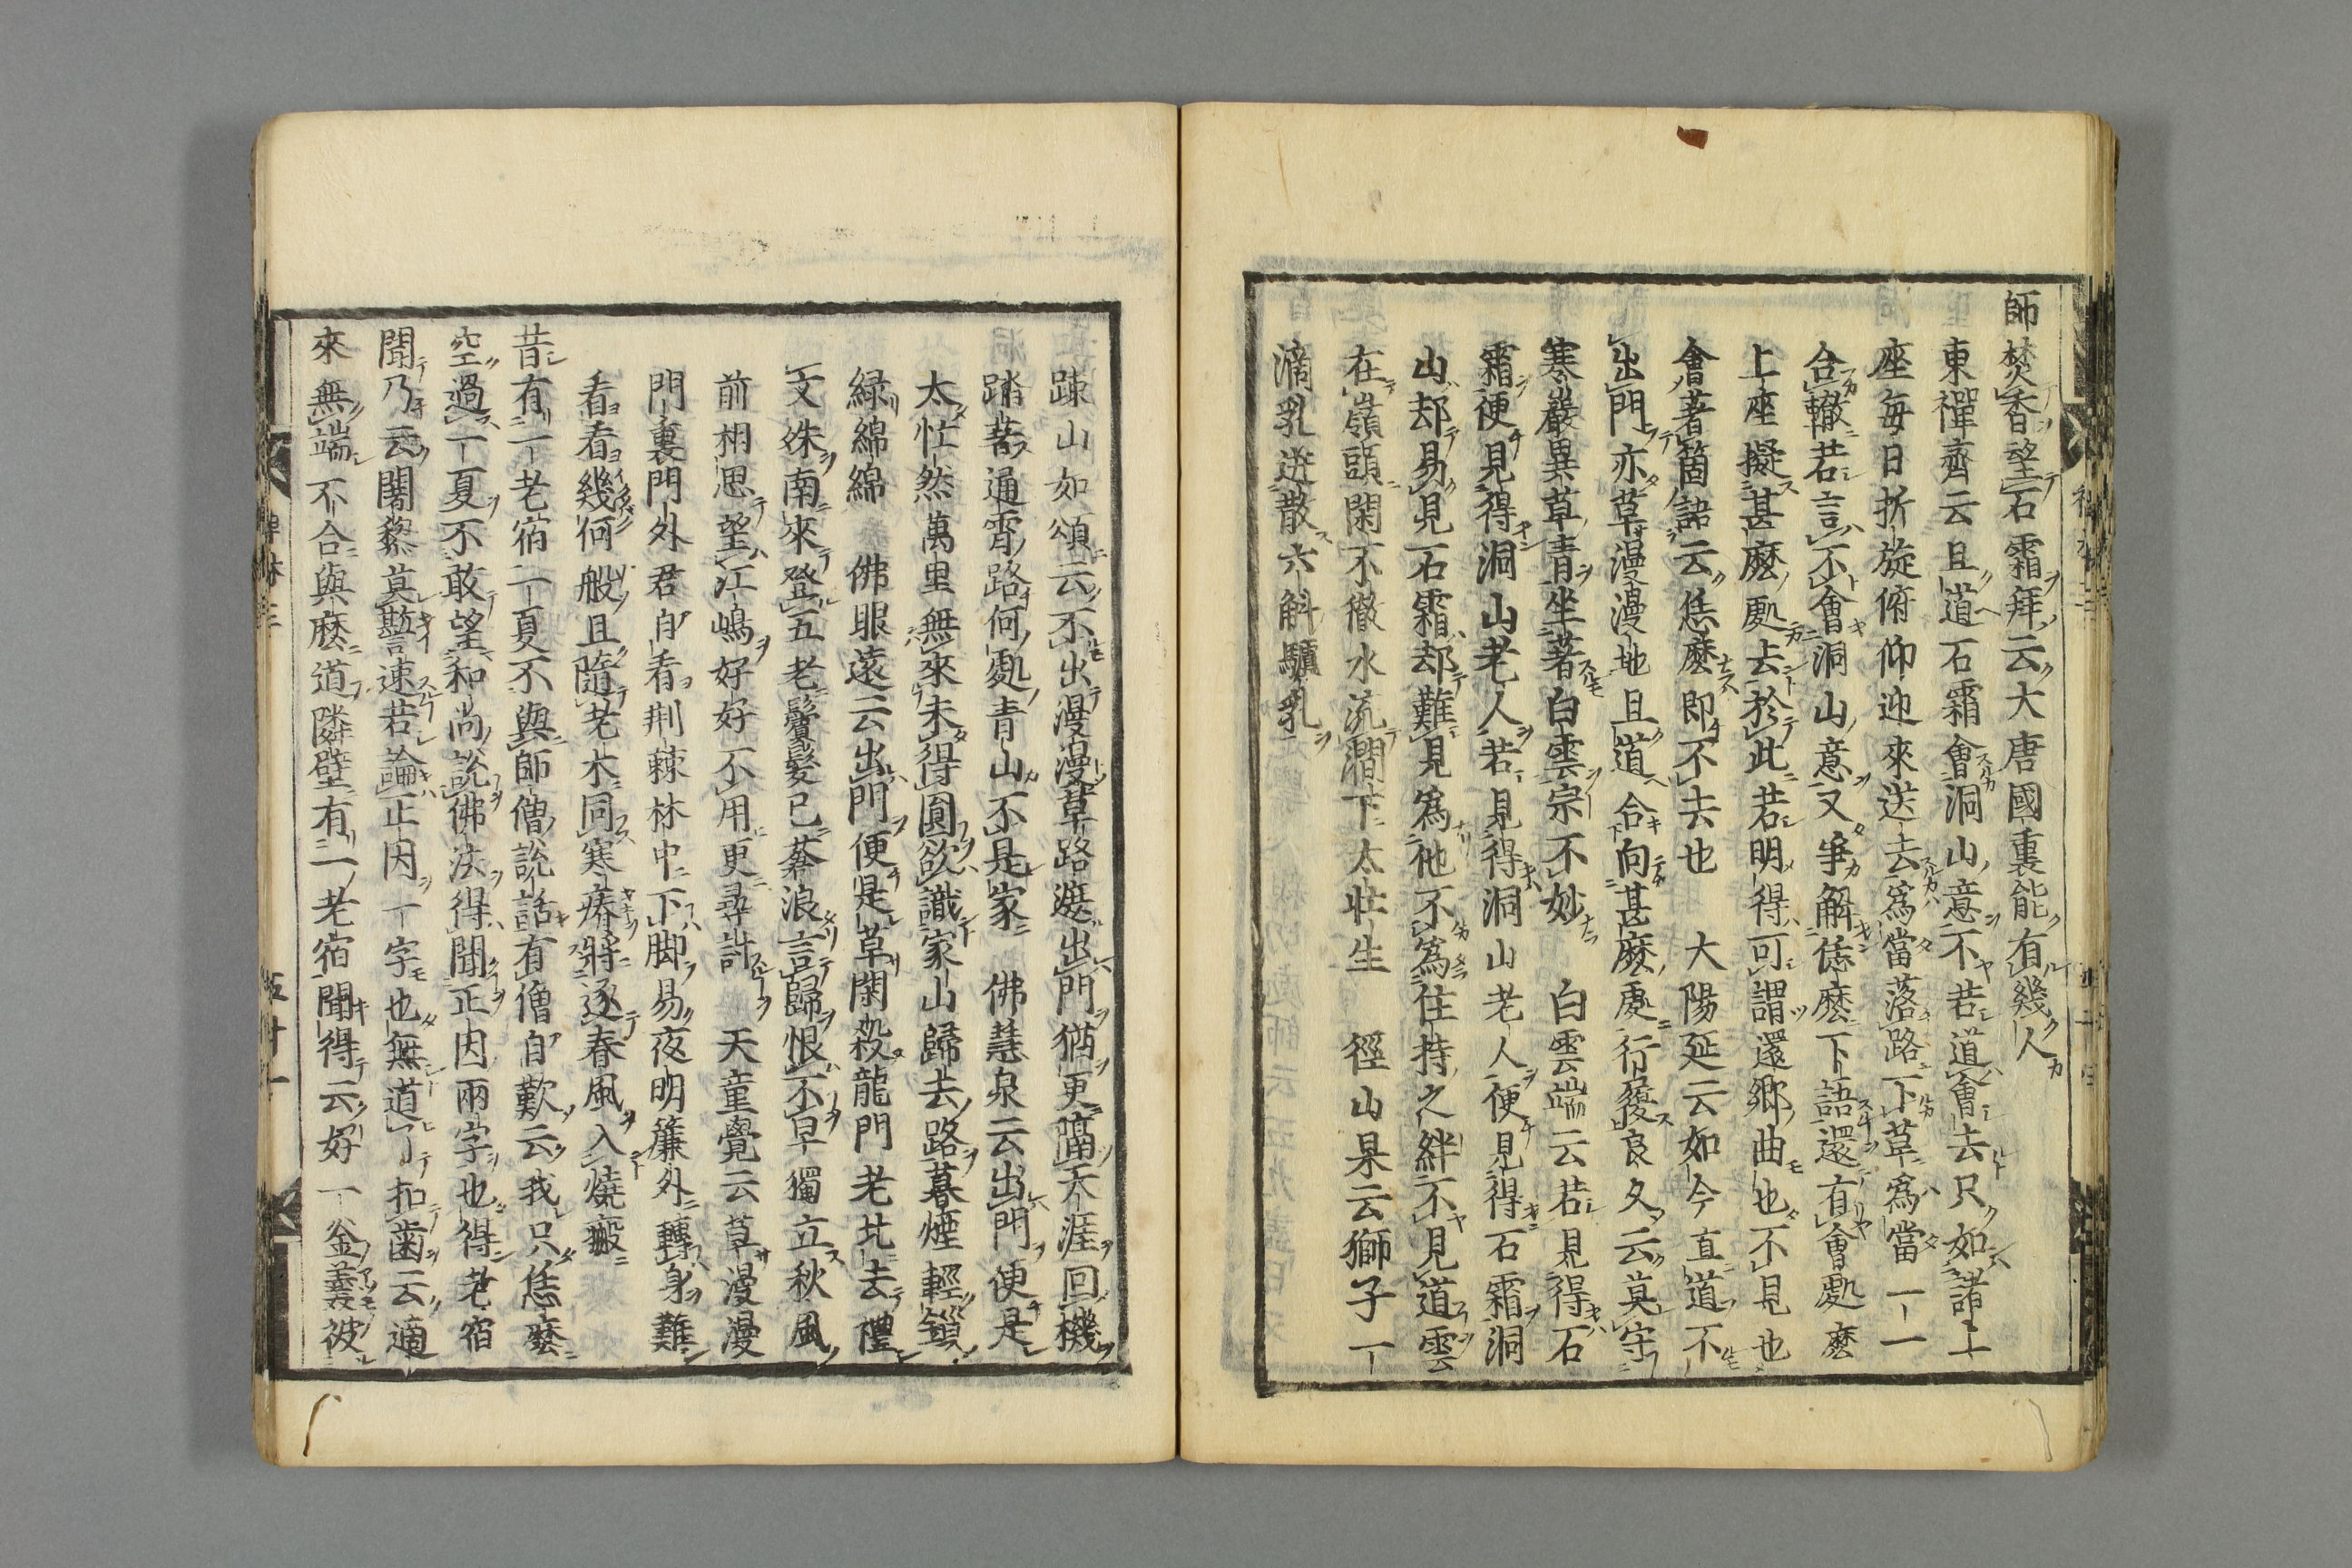 師焚香望石霜拜云大唐國裏能有幾人
東禪齊云且道石霜會洞山意不若道會去只如諸上
座每日折旋俯仰迎來送去爲當落路下草爲當一一
合轍若言不會洞山意又爭解恁麽下語還有會處麽
上座擬甚麽處去於此若明得可謂還鄉曲也不見也
會著箇語云恁麽即不去也　大陽延云如今直道不
出門亦草漫漫地且道合向甚麽處行履良久云莫守
寒巖異草青坐著白雲宗不妙　白雲端云若見得石
霜便見得洞山老人若見得洞山老人便見得石霜洞
山却易見石霜却難見爲他不爲住持之絆不見道雲
在嶺頭閑不徹水流澗下太壯生　徑山杲云獅子一
滴乳迸散六斛驢乳
踈山如頌云不出漫漫草路邊出門猶更隔天涯回機
踏著通霄路何處青山不是家　佛慧泉云出門便是
太忙然萬里無來未得圓欲識家山歸去路暮煙輕鎖
緑綿綿　佛眼遠云出門便是草閑殺龍門老北去禮
文殊南來登五老鬢髮已蒼浪言歸恨不早獨立秋風
前相思望江嶋好好不用更尋討　天童覺云草漫漫
門裏門外君自看荆棘林中下脚易夜明簾外轉身難
看看幾何般且隨老木同寒瘠將逐春風入燒瘢
昔有一老宿一夏不與師僧說話有僧自歎云我只恁麽
空過一夏不敢望和尚說佛法得聞正因兩字也得老宿
聞乃云闍黎莫䜕速若論正因一字也無道了扣齒云適
來無端不合與麽道隣壁有一老宿聞得云好一釜羹被